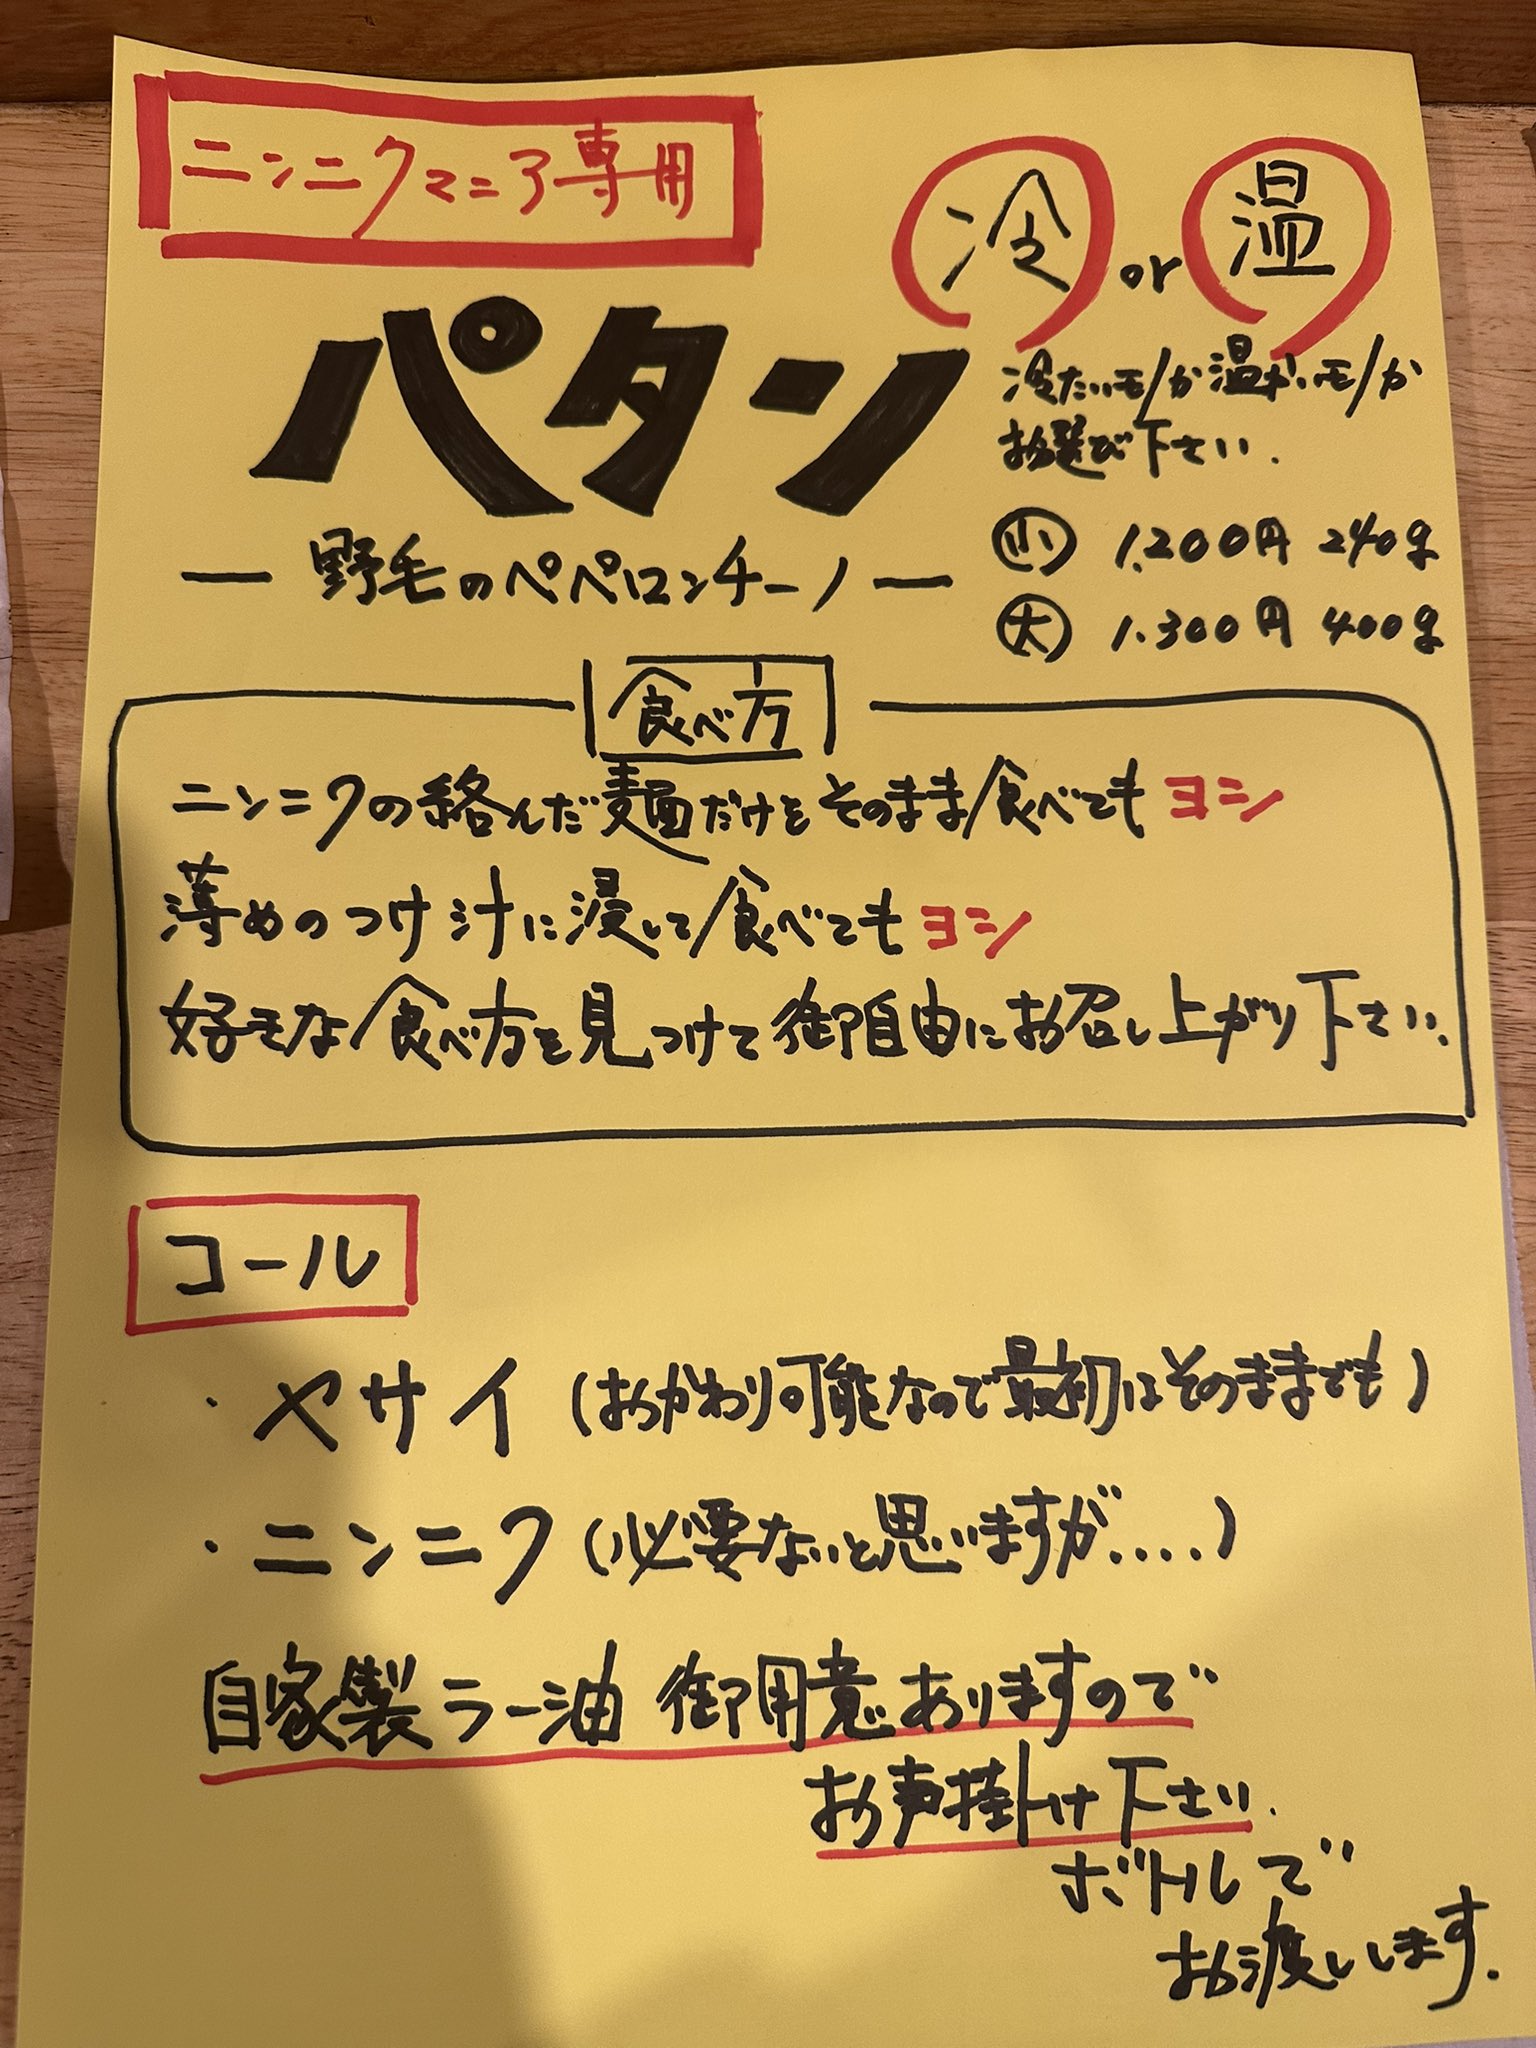 ニンニクマニア専用
冷 or 温
パタン
冷たいモノか温かいモノか
お選び下さい.
小 1.200円 240g
大 1.300円 400g
― 野毛のペペロンチーノ ―
食べ方
ニンニクの絡んだ麺だけをそのまま食べてもヨシ
薄めのつけ汁に浸して食べてもヨシ
好きな食べ方を見つけて御自由にお召し上がり下さい.
コール
・ヤサイ(おかわり可能なので最初はそのままでも)
・ニンニク(必要ないと思いますが....)
自家製ラー油 御用意ありますので
お声掛け下さい.
ボトルで
お渡しします.